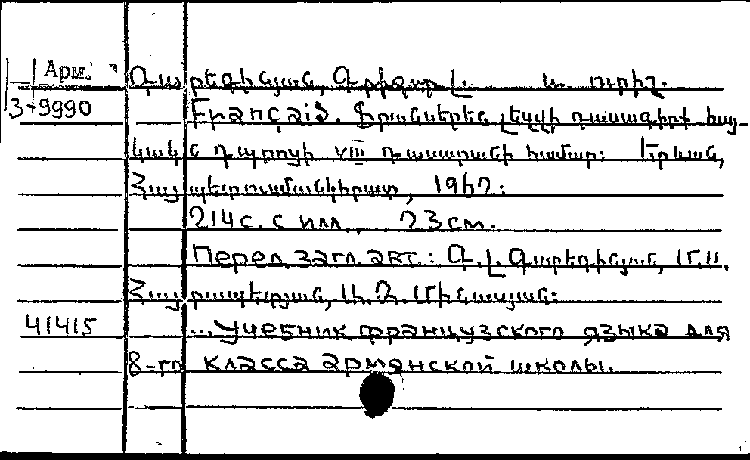 Арм. Գարեգինյան, Գրիգոր Լ. և ուրիշ.
3-9990 Français. Ֆրանսերեն լեզվի դասագիրք հայ-
կական դպրոցի VIII դասարանի համար: Երևան,
Հայպետուսմանկհրատ, 1962:
214 с. с илл., 23 см.
Перед загл. авт.: Գ. Լ. Գարեգինյան,
Հայրապետյան, Մինասյան:
41415 ...Учебник французского языка для
8-го класса армянской школы.